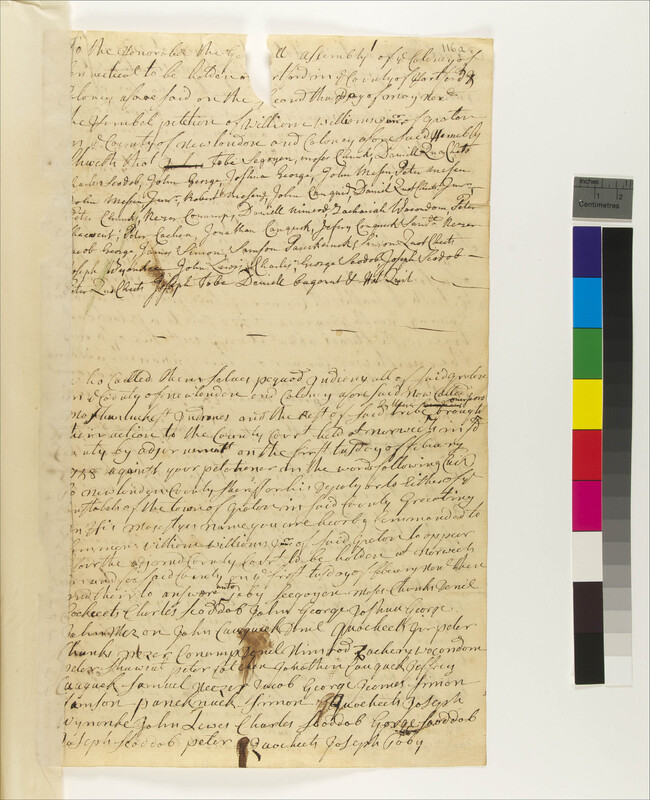 116a
To the Honorable the Ge ll assembly of ye Coloney of
nnecticut to be holden a rtford in ye County of Hartford &
Coloney afore said on the second thirsday of may Next
he Humbel petition of Williame Williams of Groton
in ye County of newlondon and Coloney afore said Humbly
sheweth that Tobe Segoyon, moses Chunks, Daniell QuaCheets
Charles Scodob, John George, Joshua George, John Mesen, Peter Mesen
John Mesen Junr, Robert Mesen, John Cauquid, Daniel QuoCheets Junr
Peter Chunks, Nezer Conamp, Daniell Nimrod, Zachariah Wocondom, Peter
Shawent, Peter Cachen, Jonathan Cauquck, Jefery Cauquck, Saml Nezer
Jacob George, James Simon, Samson Panckanuck, Simon QuoCheets
Joseph Wyonkee, John Lewis, Charles, George Scodob, Joseph Scodob —
Peter QuaCheets Joseph Tobe Daniell
who Called themselves pequod Indiens all of said Groton
in ye County of newlondon and Coloney afore said now called
mashantuckset Indiones and the Rest of said tribe brought
their action to the County Court held at norwich in sd
County by adjornment on the first tusday of febuary
against your petitioner In the words following (viz)
To newlondon County Sheriff or his Deputy or to Either of ye
Constabels of the town of Groton in said County Greeting
In His Majestyes name you are hearby Commanded to
summons Williame Williams of said Groton to appear
before the adjorned County Court to be holden at Norwich
in and for sd County on ye first tusday of febuary Next then
and their to answare unto toby Seegoyon moses Chunks Deniel
Quocheets Charles Scoddob John George Joshua George
John Mezon John Cauquick Deniel Quocheets Jnr peter
Chunks Nezer Conamp Deniel Nimrod Zachery wocondom
peter Shawant peter Cotchen Johnathen Cauquck Jeffery
Cauquck Samuel Neezer Jacob George Jeames Simon
Samson pancknuck Simon Quocheets Joseph
wyonke John Lewes Charles Scoddob George Scoddob
Joseph Scoddob peter Quocheets Joseph Toby
Inches
1 2
Centimetres